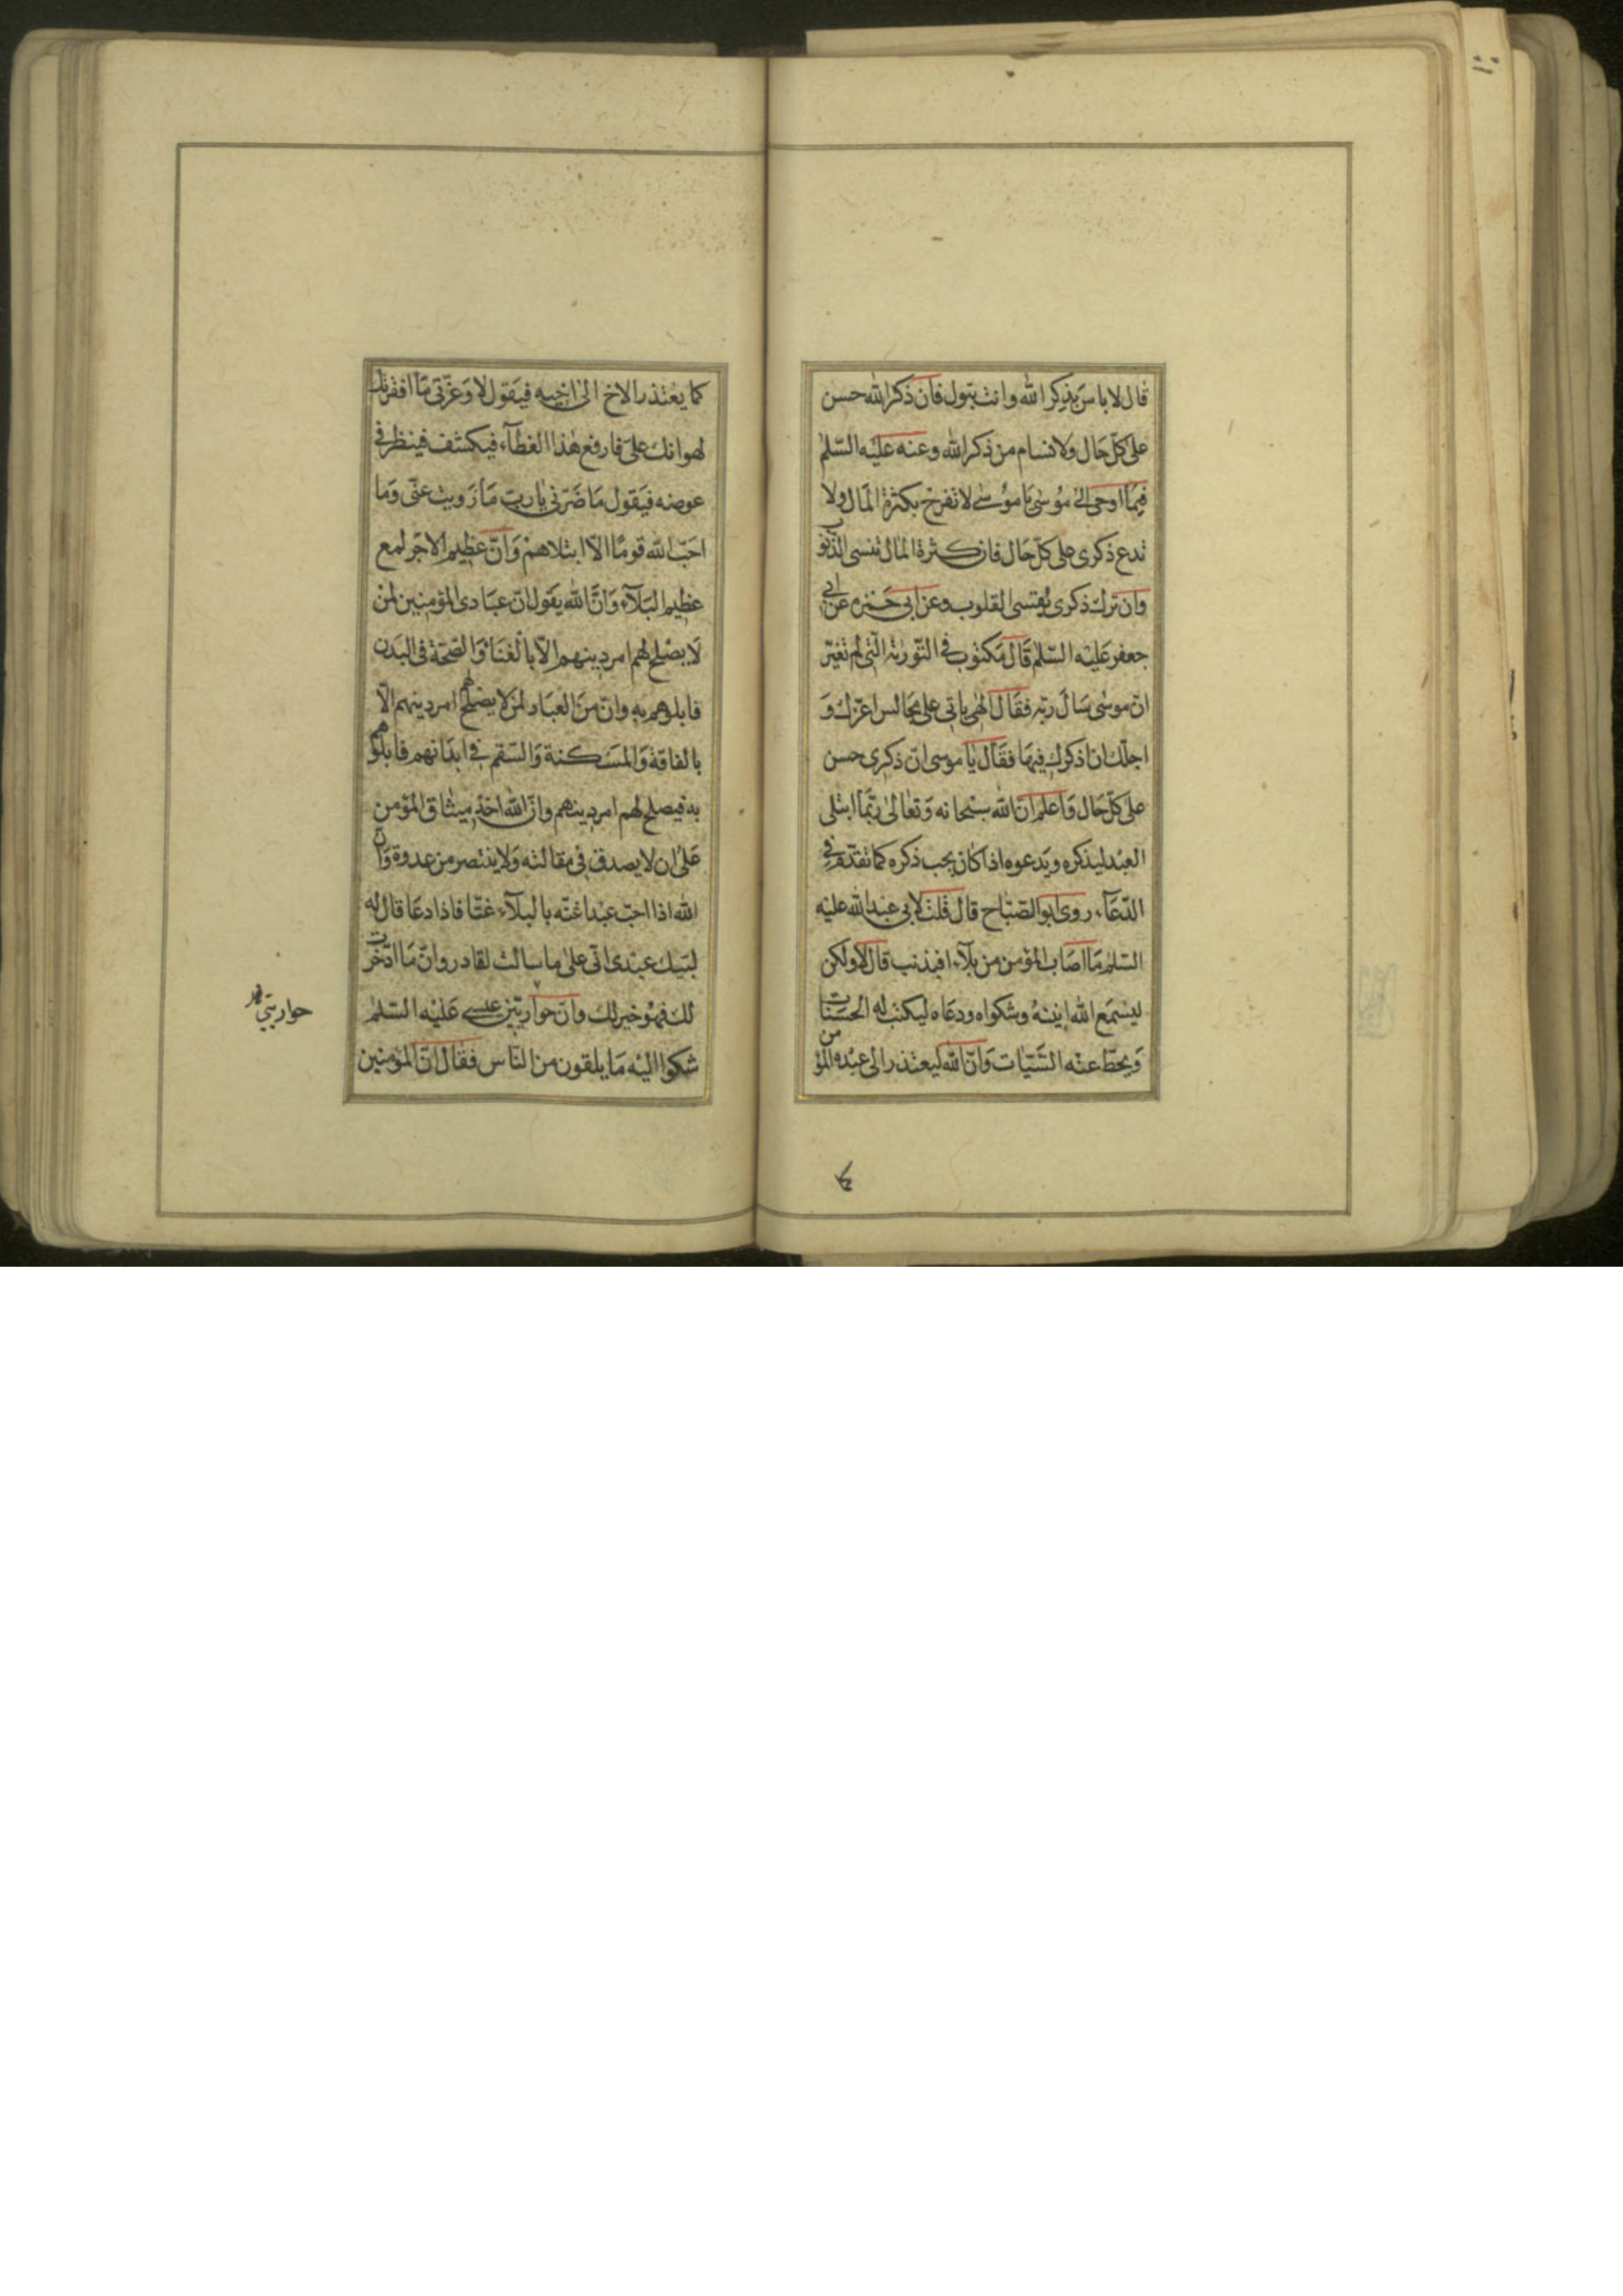 قال لا باس بذكر الله وانت تبول فان ذكر الله حسن
على كلّ حال ولا تسام من ذكر الله وعنه عليه السّلم
فيما اوحى الى موسى يا موسى لا تفرح بكثرة المال ولا
تدع ذكرى على كلّ حال فان كثرة المال تنسى الذنوب
وان ترك ذكرى يقسى القلوب وعن ابى حمزه عن ابى
جعفر عليه السّلم قال مكتوب فى التّورية الّتى لم تغيّر
انّ موسى سال ربّه فقال الهى ياتى على مجالس اعزّك و
اجلّك ان اذكرك فيها فقال يا موسى انّ ذكرى حسن
على كلّ حال واعلم انّ الله سبحانه وتعالى ربّما ابتلى
العبد ليذكره ويدعوه اذا كان يحب ذكره كما تقدّم فى
الدّعآء روى ابو الصّباح قال قلت لابى عبد الله عليه
السّلم ما اصاب المؤمن من بلآء افبذنب قال لا ولكن
ليسمع الله انينه وشكواه ودعاه ليكتب له الحسنات
ويحطّ عنه السّيّات وانّ الله ليعتذر الى عبده المؤمن
كما يعتذر الاخ الى اخيه فيقول لا وعزّتى ما افقرتك
لهوانك علىّ فارفع هذا الغطآء فيكشف فينظر فى
عوضه فيقول ما ضرّنى يا ربّ ما زويت عنّى وما
احبّ الله قومًا الّا ابتلاهم وانّ عظيم الاجر لمع
عظيم البلآء وانّ الله يقول انّ عبادى المؤمنين لمن
لا يصلح لهم امر دينهم الّا بالغنا والصّحّة فى البدن
فابلوهم به وانّ من العباد لمن لا يصلح لهم امر دينهم الّا
بالفاقة والمسكنة والسّقم فى ابدانهم فابلوهم
به فيصلح لهم امر دينهم وانّ الله اخذ ميثاق المؤمن
على ان لا يصدق فى مقالته ولا ينتصر من عدوه وانّ
الله اذا احبّ عبدا غتّه بالبلآء غتّا فاذا دعا قال له
لبّيك عبدى انّى على ما سالت لقادر وانّ ما ادّخرت
لك فهو خير لك وانّ حواريّين عيسى عليه السّلم
شكوا اليه ما يلقون من النّاس فقال انّ المؤمنين
حواريّى